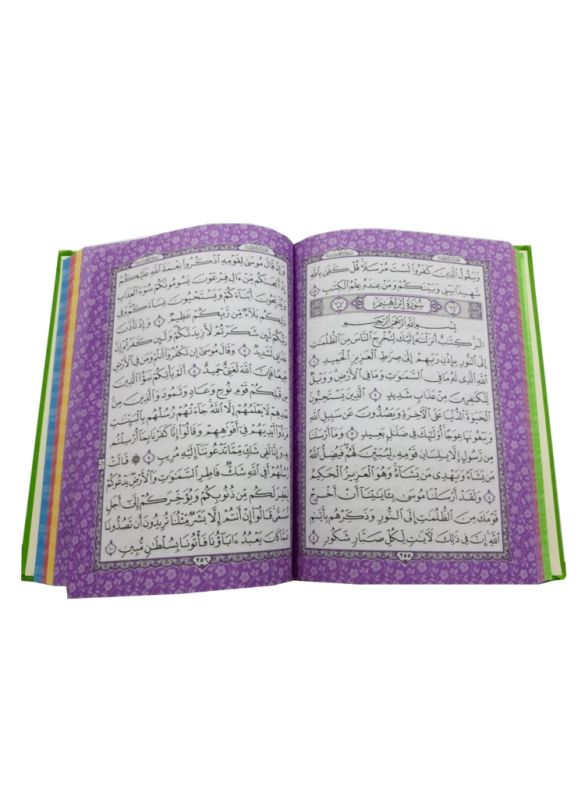 وَيَقُولُ الَّذِينَ كَفَرُوا لَسْتَ مُرْسَلًا قُلْ كَفَىٰ بِاللَّهِ
شَهِيدًا بَيْنِي وَبَيْنَكُمْ وَمَنْ عِندَهُ عِلْمُ الْكِتَابِ
سُورَةُ إِبْرَاهِيمَ
بِسْمِ اللَّهِ الرَّحْمَٰنِ الرَّحِيمِ
الٓر كِتَٰبٌ أَنزَلْنَٰهُ إِلَيْكَ لِتُخْرِجَ النَّاسَ مِنَ الظُّلُمَٰتِ
إِلَى النُّورِ بِإِذْنِ رَبِّهِمْ إِلَىٰ صِرَٰطِ الْعَزِيزِ الْحَمِيدِ ١
اللَّهِ الَّذِي لَهُ مَا فِي السَّمَٰوَٰتِ وَمَا فِي الْأَرْضِ وَوَيْلٌ
لِّلْكَٰفِرِينَ مِنْ عَذَابٍ شَدِيدٍ ٢ الَّذِينَ يَسْتَحِبُّونَ
الْحَيَوٰةَ الدُّنْيَا عَلَى الْآخِرَةِ وَيَصُدُّونَ عَن سَبِيلِ اللَّهِ
وَيَبْغُونَهَا عِوَجًا أُو۟لَٰٓئِكَ فِي ضَلَٰلٍ بَعِيدٍ ٣ وَمَا أَرْسَلْنَا
مِن رَّسُولٍ إِلَّا بِلِسَانِ قَوْمِهِ لِيُبَيِّنَ لَهُمْ فَيُضِلُّ اللَّهُ
مَن يَشَاءُ وَيَهْدِي مَن يَشَاءُ وَهُوَ الْعَزِيزُ الْحَكِيمُ
٤ وَلَقَدْ أَرْسَلْنَا مُوسَىٰ بِـَٔايَٰتِنَا أَنْ أَخْرِجْ
قَوْمَكَ مِنَ الظُّلُمَٰتِ إِلَى النُّورِ وَذَكِّرْهُم بِأَيَّىٰمِ
اللَّهِ إِنَّ فِي ذَٰلِكَ لَـَٔايَٰتٍ لِّكُلِّ صَبَّارٍ شَكُورٍ ٥
٢٥٥
وَإِذْ قَالَ مُوسَىٰ لِقَوْمِهِ اذْكُرُوا نِعْمَةَ اللَّهِ عَلَيْكُمْ
إِذْ أَنجَىٰكُم مِّنْ آلِ فِرْعَوْنَ يَسُومُونَكُمْ سُوءَ الْعَذَابِ
وَيُذَبِّحُونَ أَبْنَاءَكُمْ وَيَسْتَحْيُونَ نِسَاءَكُمْ وَفِي
ذَٰلِكُم بَلَاءٌ مِّن رَّبِّكُمْ عَظِيمٌ ٦ وَإِذْ تَأَذَّنَ
رَبُّكُمْ لَئِن شَكَرْتُمْ لَأَزِيدَنَّكُمْ وَلَئِن كَفَرْتُمْ إِنَّ
عَذَابِي لَشَدِيدٌ ٧ وَقَالَ مُوسَىٰ إِن تَكْفُرُوا أَنتُمْ وَمَن فِي الْأَرْضِ
جَمِيعًا فَإِنَّ اللَّهَ لَغَنِيٌّ حَمِيدٌ ٨ أَلَمْ يَأْتِكُمْ نَبَؤُا۟ الَّذِينَ
مِن قَبْلِكُمْ قَوْمِ نُوحٍ وَعَادٍ وَثَمُودَ وَالَّذِينَ مِن
بَعْدِهِمْ لَا يَعْلَمُهُمْ إِلَّا اللَّهُ جَاءَتْهُمْ رُسُلُهُم بِالْبَيِّنَٰتِ
فَرَدُّوا أَيْدِيَهُمْ فِي أَفْوَٰهِهِمْ وَقَالُوا إِنَّا كَفَرْنَا بِمَا أُرْسِلْتُم
بِهِ وَإِنَّا لَفِي شَكٍّ مِّمَّا تَدْعُونَنَا إِلَيْهِ مُرِيبٍ ٩ ۞ قَالَتْ
رُسُلُهُمْ أَفِي اللَّهِ شَكٌّ فَاطِرِ السَّمَٰوَٰتِ وَالْأَرْضِ يَدْعُوكُمْ
لِيَغْفِرَ لَكُم مِّن ذُنُوبِكُمْ وَيُؤَخِّرَكُمْ إِلَىٰ أَجَلٍ
مُّسَمًّى قَالُوا إِنْ أَنتُمْ إِلَّا بَشَرٌ مِّثْلُنَا تُرِيدُونَ أَن تَصُدُّونَا
عَمَّا كَانَ يَعْبُدُ ءَابَاؤُنَا فَأْتُونَا بِسُلْطَٰنٍ مُّبِينٍ ١٠
٢٥٦